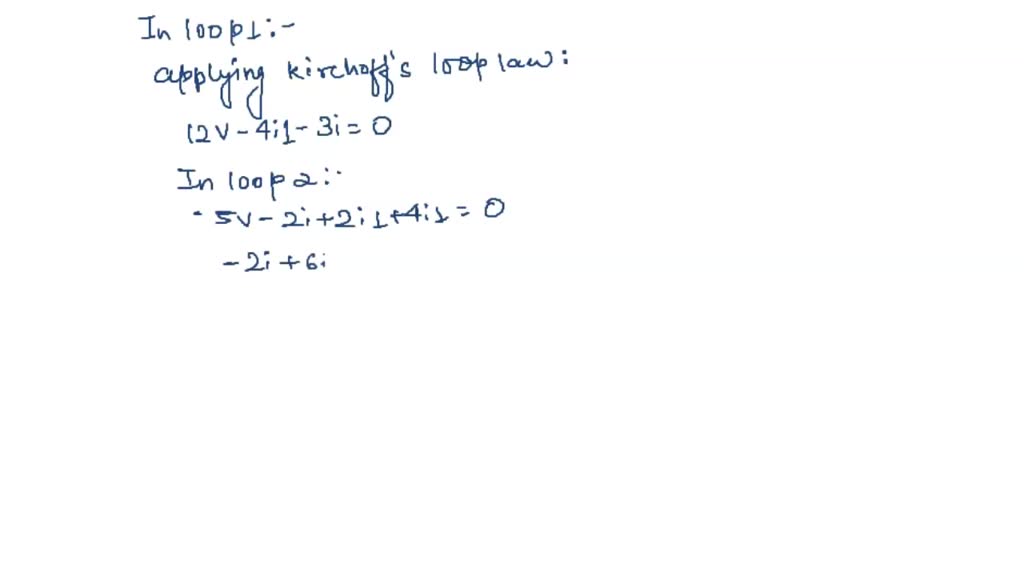 In loop1:-
applying kirchoff's loop law:
12V - 4i1 - 3i = 0
In loop 2:-
- 5V - 2i + 2i1 + 4i1 = 0
- 2i + 6i